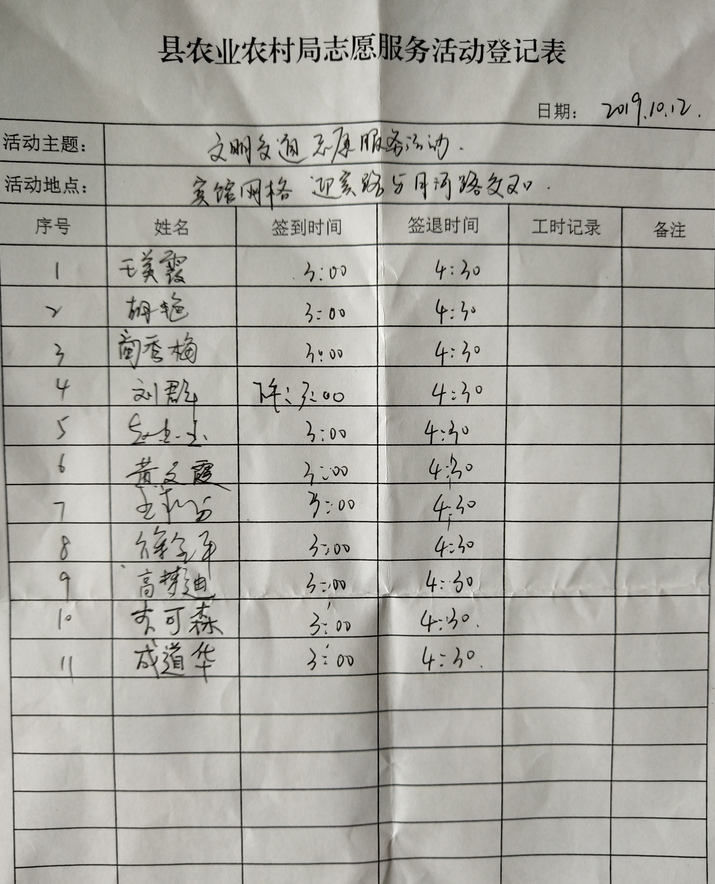 县农业农村局志愿服务活动登记表
日期： 2019.10.12.
活动主题： 文明交通志愿服务活动.
活动地点： 宾馆网格 迎宾路与月河路交叉口.
序号 姓名 签到时间 签退时间 工时记录 备注
1 王美霞 3:00 4:30
2 胡艳 3:00 4:30
3 商秀梅 3:00 4:30
4 刘群 下午:3:00 4:30
5 3:00 4:30
6 黄文霞 3:00 4:30
7 3:00 4:30
8 3:00 4:30
9 高梦迪 3:00 4:30
10 可森 3:00 4:30.
11 成道华 3:00 4:30.